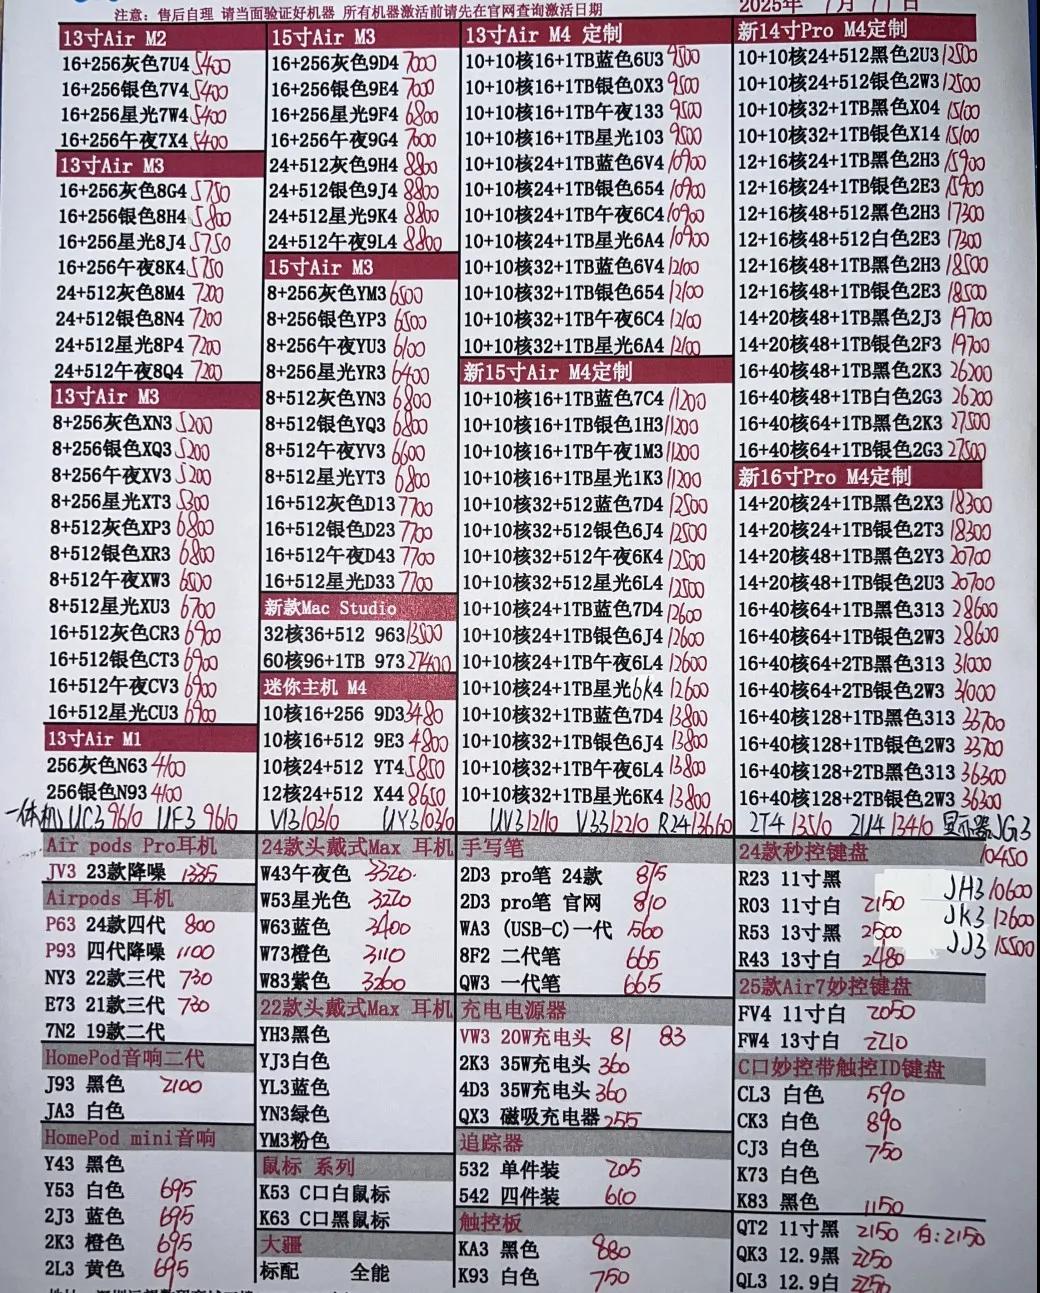 注意: 售后自理 请当面验证好机器 所有机器激活前请先在官网查询激活日期
2025年 7月 11日
13寸Air M2
16+256灰色7U4 5400
16+256银色7V4 5400
16+256星光7W4 5400
16+256午夜7X4 5400
13寸Air M3
16+256灰色8G4 5750
16+256银色8H4 5800
16+256星光8J4 5750
16+256午夜8K4 5750
24+512灰色8M4 7200
24+512银色8N4 7200
24+512星光8P4 7200
24+512午夜8Q4 7200
13寸Air M3
8+256灰色XN3 5200
8+256银色XQ3 5200
8+256午夜XV3 5200
8+256星光XT3 5300
8+512灰色XP3 6800
8+512银色XR3 6800
8+512午夜XW3 6500
8+512星光XU3 6700
16+512灰色CR3 6900
16+512银色CT3 6900
16+512午夜CV3 6900
16+512星光CU3 6900
13寸Air M1
256灰色N63 4100
256银色N93 4100
15寸Air M3
16+256灰色9D4 7000
16+256银色9E4 7000
16+256星光9F4 6800
16+256午夜9G4 7000
24+512灰色9H4 8800
24+512银色9J4 8800
24+512星光9K4 8800
24+512午夜9L4 8800
15寸Air M3
8+256灰色YM3 6500
8+256银色YP3 6500
8+256午夜YU3 6100
8+256星光YR3 6400
8+512灰色YN3 6800
8+512银色YQ3 6800
8+512午夜YV3 6600
8+512星光YT3 6800
16+512灰色D13 7700
16+512银色D23 7700
16+512午夜D43 7700
16+512星光D33 7700
新款Mac Studio
32核36+512 963 13500
60核96+1TB 973 27400
迷你主机 M4
10核16+256 9D3 3480
10核16+512 9E3 4800
10核24+512 YT4 5850
12核24+512 X44 8650
13寸Air M4 定制
10+10核16+1TB蓝色6U3 9500
10+10核16+1TB银色0X3 9500
10+10核16+1TB午夜133 9500
10+10核16+1TB星光103 9500
10+10核24+1TB蓝色6V4 10900
10+10核24+1TB银色654 10900
10+10核24+1TB午夜6C4 10900
10+10核24+1TB星光6A4 10900
10+10核32+1TB蓝色6V4 12100
10+10核32+1TB银色654 12100
10+10核32+1TB午夜6C4 12100
10+10核32+1TB星光6A4 12100
新15寸Air M4定制
10+10核16+1TB蓝色7C4 11200
10+10核16+1TB银色1H3 11200
10+10核16+1TB午夜1M3 11200
10+10核16+1TB星光1K3 11200
10+10核32+512蓝色7D4 12500
10+10核32+512银色6J4 12500
10+10核32+512午夜6K4 12500
10+10核32+512星光6L4 12500
10+10核24+1TB蓝色7D4 12600
10+10核24+1TB银色6J4 12600
10+10核24+1TB午夜6L4 12600
10+10核24+1TB星光6K4 12600
10+10核32+1TB蓝色7D4 13800
10+10核32+1TB银色6J4 13800
10+10核32+1TB午夜6L4 13800
10+10核32+1TB星光6K4 13800
新14寸Pro M4定制
10+10核24+512黑色2U3 12500
10+10核24+512银色2W3 12500
10+10核32+1TB黑色X04 15100
10+10核32+1TB银色X14 15100
12+16核24+1TB黑色2H3 15900
12+16核24+1TB银色2E3 15900
12+16核48+512黑色2H3 17300
12+16核48+512白色2E3 17300
12+16核48+1TB黑色2H3 18500
12+16核48+1TB银色2E3 18500
14+20核48+1TB黑色2J3 19700
14+20核48+1TB银色2F3 19700
16+40核48+1TB黑色2K3 26200
16+40核48+1TB白色2G3 26200
16+40核64+1TB黑色2K3 27500
16+40核64+1TB银色2G3 27500
新16寸Pro M4定制
14+20核24+1TB黑色2X3 18300
14+20核24+1TB银色2T3 18300
14+20核48+1TB黑色2Y3 20700
14+20核48+1TB银色2U3 20700
16+40核64+1TB黑色313 28600
16+40核64+1TB银色2W3 28600
16+40核64+2TB黑色313 31000
16+40核64+2TB银色2W3 31000
16+40核128+1TB黑色313 33700
16+40核128+1TB银色2W3 33700
16+40核128+2TB黑色313 36300
16+40核128+2TB银色2W3 36300
一体机 UC3 9610 UF3 9610 V13 10310 UY3 10310 UV3 12110 V33 12210 R24 13660 2T4 13510 2U4 13410 显示器JG3 10450
JH3 10600
JK3 12600
JJ3 15500
Air pods Pro耳机
JV3 23款降噪 1335
Airpods 耳机
P63 24款四代 800
P93 四代降噪 1100
NY3 22款三代 730
E73 21款三代 730
7N2 19款二代
HomePod音响二代
J93 黑色 2100
JA3 白色
HomePod mini音响
Y43 黑色
Y53 白色 695
2J3 蓝色 695
2K3 橙色 695
2L3 黄色 695
24款头戴式Max 耳机
W43午夜色 3320
W53星光色 3220
W63蓝色 3400
W73橙色 3110
W83紫色 3260
22款头戴式Max 耳机
YH3黑色
YJ3白色
YL3蓝色
YN3绿色
YM3粉色
鼠标 系列
K53 C口白鼠标
K63 C口黑鼠标
大疆
标配 全能
手写笔
2D3 pro笔 24款 875
2D3 pro笔 官网 810
WA3 (USB-C)一代 560
8F2 二代笔 665
QW3 一代笔 665
充电电源器
VW3 20W充电头 81 83
2K3 35W充电头 360
4D3 35W充电头 360
QX3 磁吸充电器 255
追踪器
532 单件装 205
542 四件装 610
触控板
KA3 黑色 880
K93 白色 750
24款秒控键盘
R23 11寸黑
R03 11寸白 2150
R53 13寸黑 2500
R43 13寸白 2480
25款Air7妙控键盘
FV4 11寸白 2050
FW4 13寸白 2210
C口妙控带触控ID键盘
CL3 白色 590
CK3 白色 890
CJ3 白色 750
K73 白色
K83 黑色 1150
QT2 11寸黑 2150 白:2150
QK3 12.9黑 2250
QL3 12.9白 2250